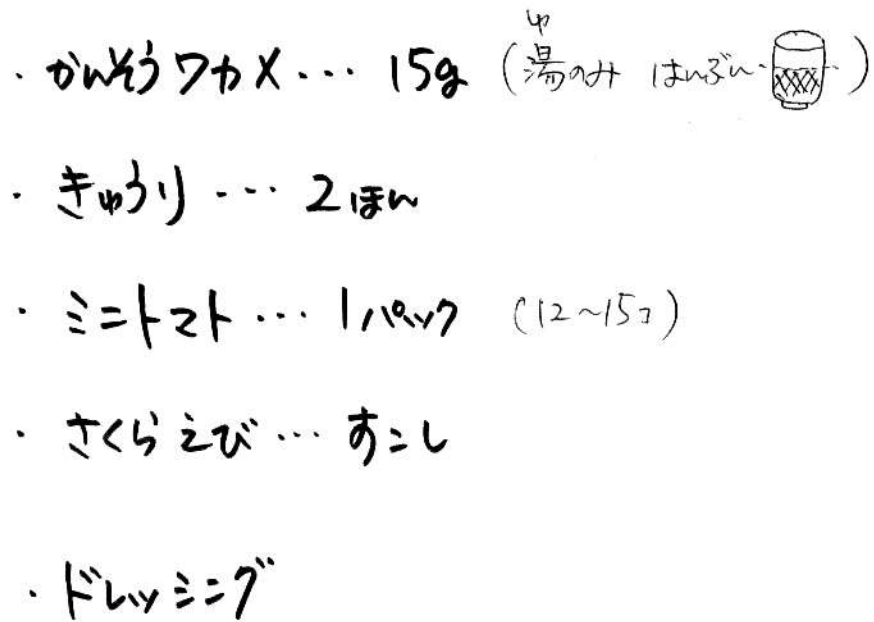 ・かんそうワカメ… 15g (湯のみ はんぶん)
・きゅうり… 2ほん
・ミニトマト… 1パック (12～15コ)
・さくらえび… すこし
・ドレッシング